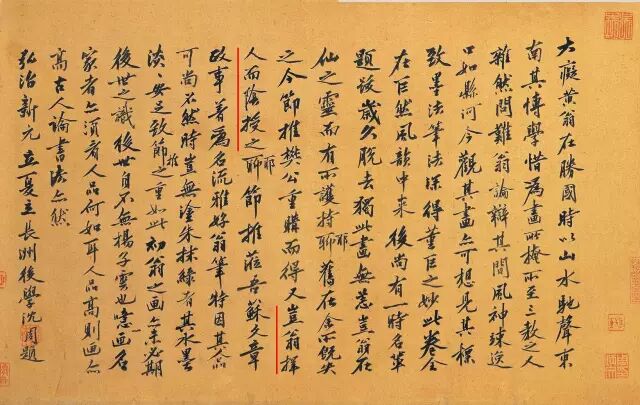 大癡黃翁在勝國時以山水馳聲東
南其博學惜為畫所掩所至三教之人
雜然問難翁論辯其間風神竦逸
口如懸河今觀其畫亦可想見其標
致墨法筆法深得董巨之妙此卷全
在巨然風韻中來後尚有一時名輩
題跋歲久脫去獨此畫無恙豈翁在
仙之靈而有所護持耶舊在余所既失
之今節推樊公重購而得又豈翁擇
人而陰授之耶節推蒞吾蘇文章
政事著為名流雅好翁筆特因其人品
可尚不然時豈無塗朱抹綠者其水墨
淡〻安足致節推之重如此初翁之画亦未必期
後世之識後世自不無楊子雲也噫以画名
家者亦須看人品何如耳人品高則畫亦
高古人論書法亦然
弘治新元立夏長洲後學沈周題